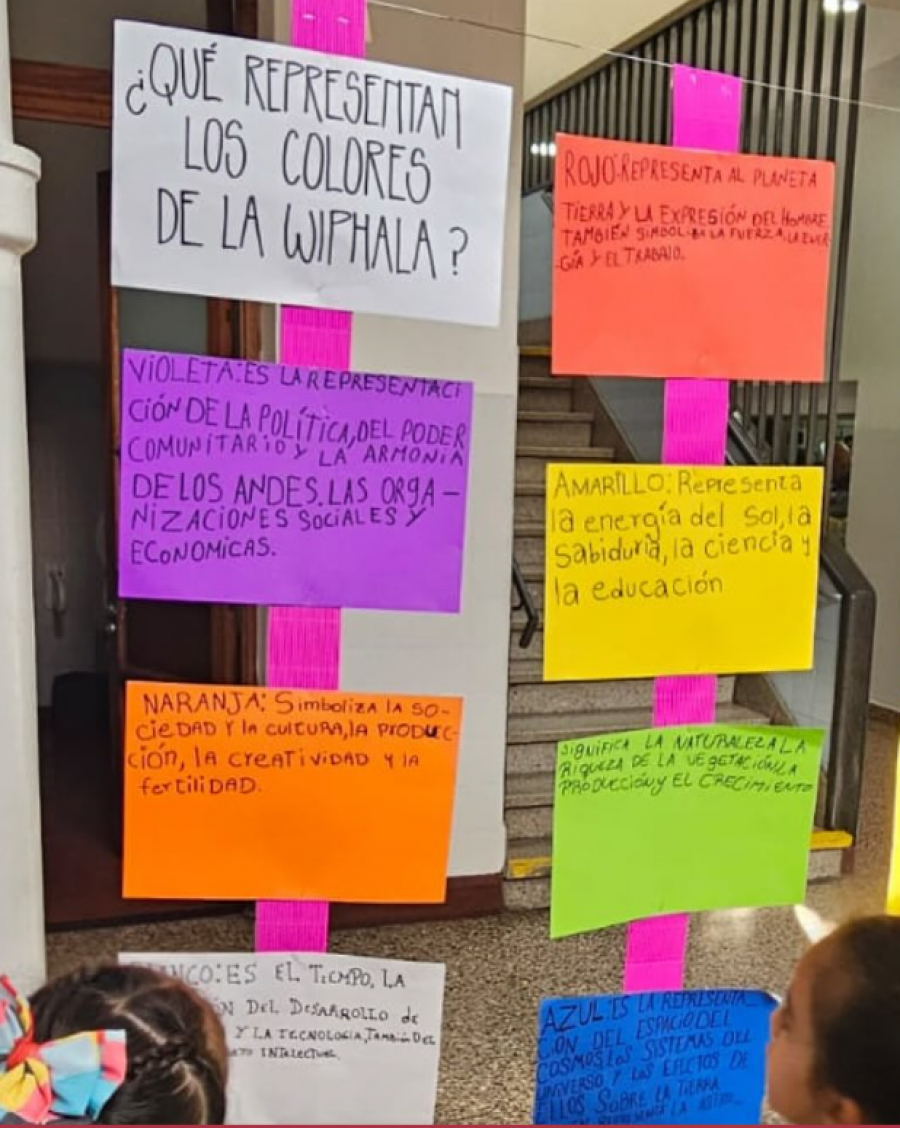 ¿QUÉ REPRESENTAN
LOS COLORES
DE LA WIPHALA?
VIOLETA: ES LA REPRESENTACI
CIÓN DE LA POLÍTICA, DEL PODER
COMUNITARIO Y LA ARMONIA
DE LOS ANDES. LAS ORGA-
NIZACIONES SOCIALES Y
ECONOMICAS.
NARANJA: Simboliza la SO-
cieDAD Y la cultura, la PRODUC-
ción, la creatividad y la
fertiliDAD.
ES EL TIEMPO, LA
DEL DESARROLLO de
Y LA TECNOLOGIA, TAMBIÉN DEL
INTELECTUAL.
ROJO: REPRESENTA AL PLANETA
TIERRA Y LA EXPRESIÓN DEL HOMBRE
TAMBIÉN LA FUERZA, LA ENER-
-GÍA Y EL TRABAJO.
AMARILLO: Representa
la energía del Sol, la
Sabiduría, la ciencia y
la educación
SIGNIFICA LA NATURALEZA LA
RIQUEZA DE LA VEGETACIÓN, LA
PRODUCCIÓN y EL CRECIMIENTO
AZUL: ES LA REPRESENTA
CION DEL ESPACIO DEL
COSMOS, LOS SISTEMAS DEL
UNIVERSO Y LOS EFECTOS DE
ELLOS SOBRE LA TIERRA
LA